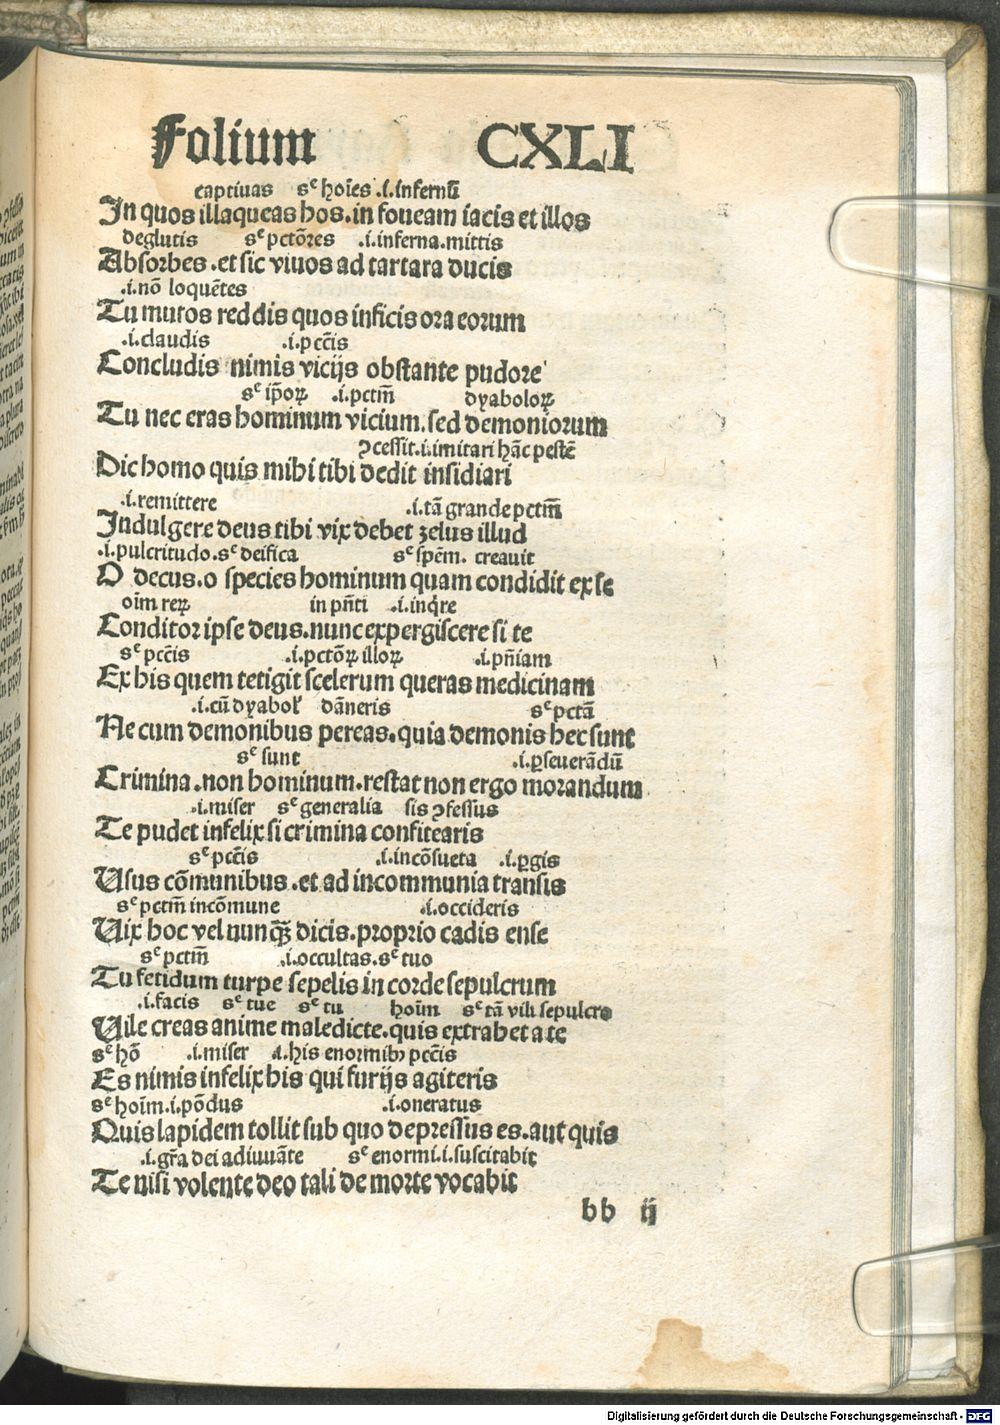 Folium CXLI
captiuas sᶜ hoīes .i.infernū
In quos illaqueas hos.in foueam iacis et illos
deglutis sᶜ pctōres .i.inferna.mittis
Absorbes .et sic viuos ad tartara ducis
.i.nō loquētes
Tu mutos reddis quos inficis ora eorum
.i.claudis .i.pctīs
Concludis nimis vicijs obstante pudore
sᶜ ip̄oꝝ .i.pctm̄ dyaboloꝝ
Tu nec eras hominum vicium.sed demoniorum
ꝯcessit.i.imitari hāc pestē
Dic homo quis mihi tibi dedit insidiari
.i.remittere .i.tā grande pctm̄
Indulgere deus tibi vix debet zelus illud
.i.pulcritudo.sᶜ deifica sᶜ spēm. creauit
O decus.o species hominum quam condidit ex se
oīm reꝝ in pn̄ti .i.inqͥre
Conditor ipse deus.nunc expergiscere si te
sᶜ pctīs .i.pctōꝝ illoꝝ .i.pn̄iam
Ex his quem tetigit scelerum queras medicinam
.i.cū dyabol' dāneris sᶜ pctā
Ne cum demonibus pereas.quia demonis hec sunt
sᶜ sunt .i.ꝑseuerādū
Crimina.non hominum.restat non ergo morandum
.i.miser sᶜ generalia sis ꝯfessus
Te pudet infelix si crimina confitearis
sᶜ pctīs .i.incōsueta .i.ꝑgis
Usus cōmunibus .et ad incommunia transis
sᶜ pctm̄ incōmune .i.occideris
Uix hoc vel nunqꝫ dicis.proprio cadis ense
sᶜ pctm̄ .i.occultas.sᶜ tuo
Tu fetidum turpe sepelis in corde sepulcrum
.i.facis sᶜ tue sᶜ tu hoīm sᶜ tā vili sepulcro
Uile creas anime maledicte.quis extrahet a te
sᶜ hō .i.miser .i.his enormibꝫ pctīs
Es nimis infelix his qui furijs agiteris
sᶜ hoīm.i.pōdus .i.oneratus
Quis lapidem tollit sub quo depressus es.aut quis
.i.gr̄a dei adiuuāte sᶜ enormi.i.suscitabit
Te nisi volente deo tali de morte vocabit
bb ij
Digitalisierung gefördert durch die Deutsche Forschungsgemeinschaft - DFG